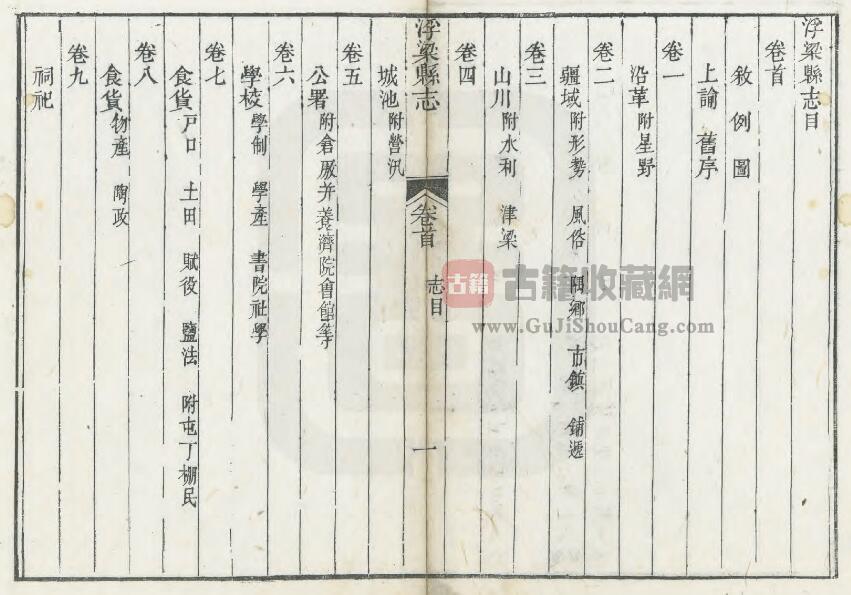 浮梁縣志目
卷首
敘 例 圖
上諭 舊序
卷一
沿革 附星野
卷二
疆域 附形勢 風俗 隅鄉 市鎮 鋪遞
卷三
山川 附水利 津梁
卷四
浮梁縣志 卷首 志目 一
城池 附營汛
卷五
公署 附倉廒并養濟院會館等
卷六
學校 學制 學產 書院社學
卷七
食貨 戶口 土田 賦役 鹽法 附屯丁棚民
卷八
食貨 物產 陶政
卷九
祠祀
古籍 古籍收藏網
www.GuJiShouCang.com